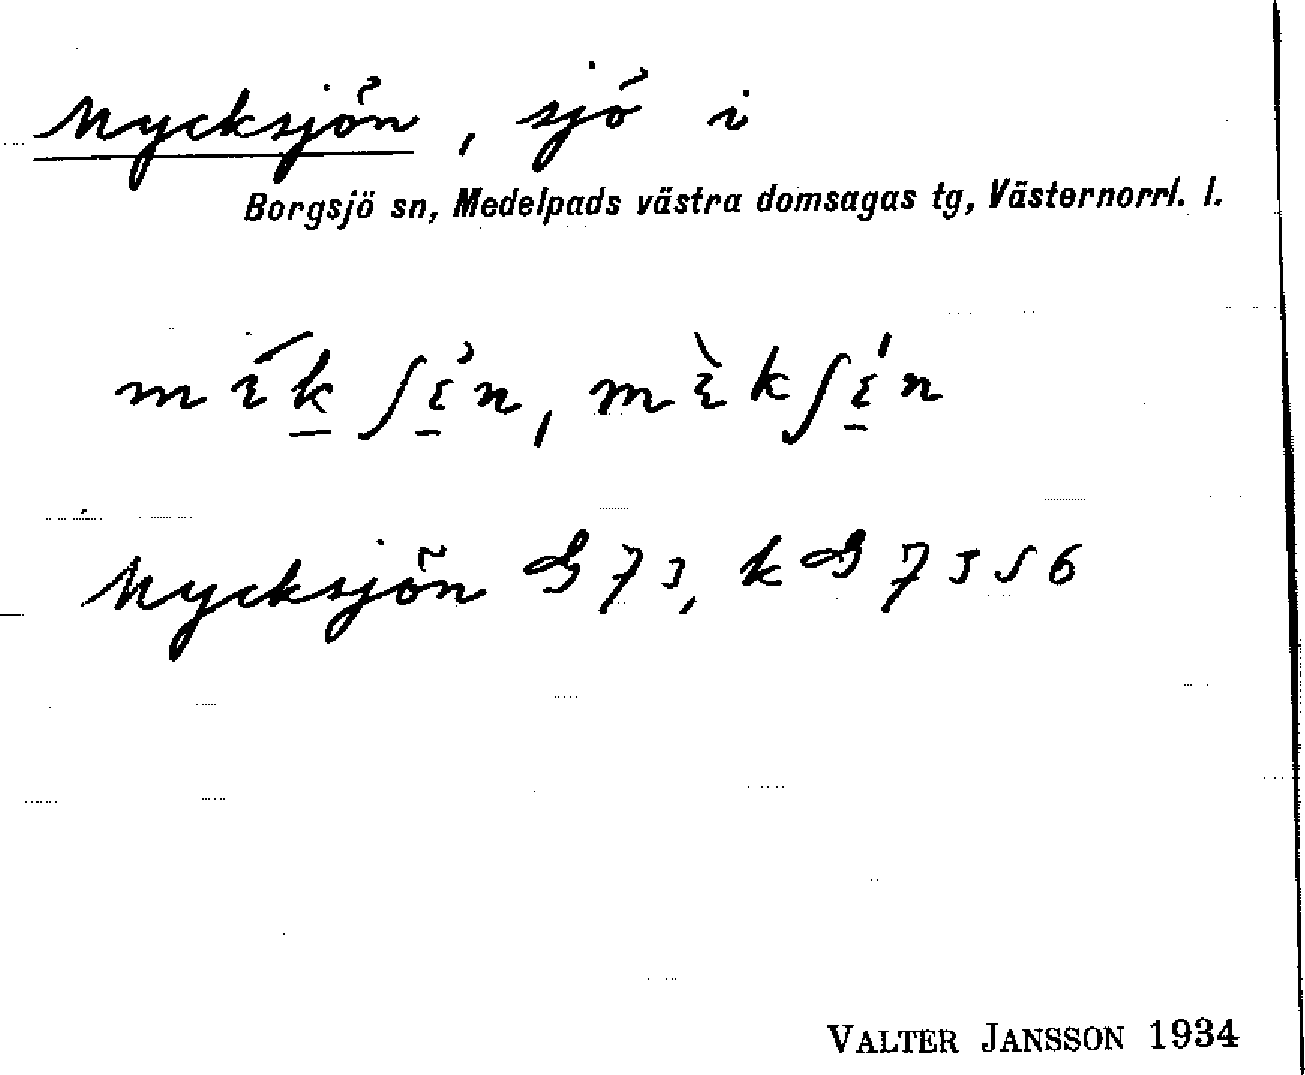 Mycksjön, sjö i
Borgsjö sn, Medelpads västra domsagas tg, Västernorrl. l.
Mycksjön G 73, k G 7356
VALTER JANSSON 1934